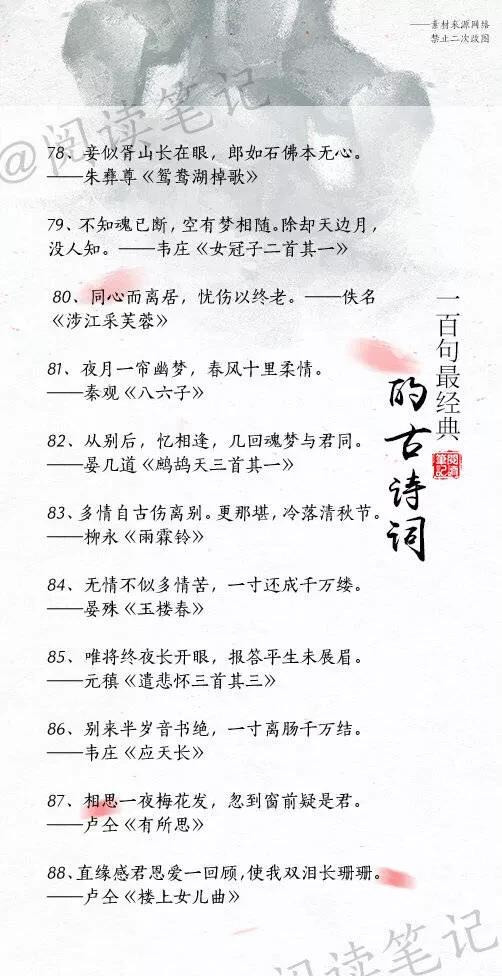 ——素材来源网络
禁止二次改图
@阅读笔记
78、妾似胥山长在眼，郎如石佛本无心。
——朱彝尊《鸳鸯湖棹歌》
79、不知魂已断，空有梦相随。除却天边月，
没人知。——韦庄《女冠子二首其一》
80、同心而离居，忧伤以终老。——佚名
《涉江采芙蓉》
81、夜月一帘幽梦，春风十里柔情。
——秦观《八六子》
82、从别后，忆相逢，几回魂梦与君同。
——晏几道《鹧鸪天三首其一》
83、多情自古伤离别。更那堪，冷落清秋节。
——柳永《雨霖铃》
84、无情不似多情苦，一寸还成千万缕。
——晏殊《玉楼春》
85、唯将终夜长开眼，报答平生未展眉。
——元稹《遣悲怀三首其三》
86、别来半岁音书绝，一寸离肠千万结。
——韦庄《应天长》
87、相思一夜梅花发，忽到窗前疑是君。
——卢仝《有所思》
88、直缘感君恩爱一回顾，使我双泪长珊珊。
——卢仝《楼上女儿曲》
一百句最经典
的古诗词
閱讀
筆記
@阅读笔记